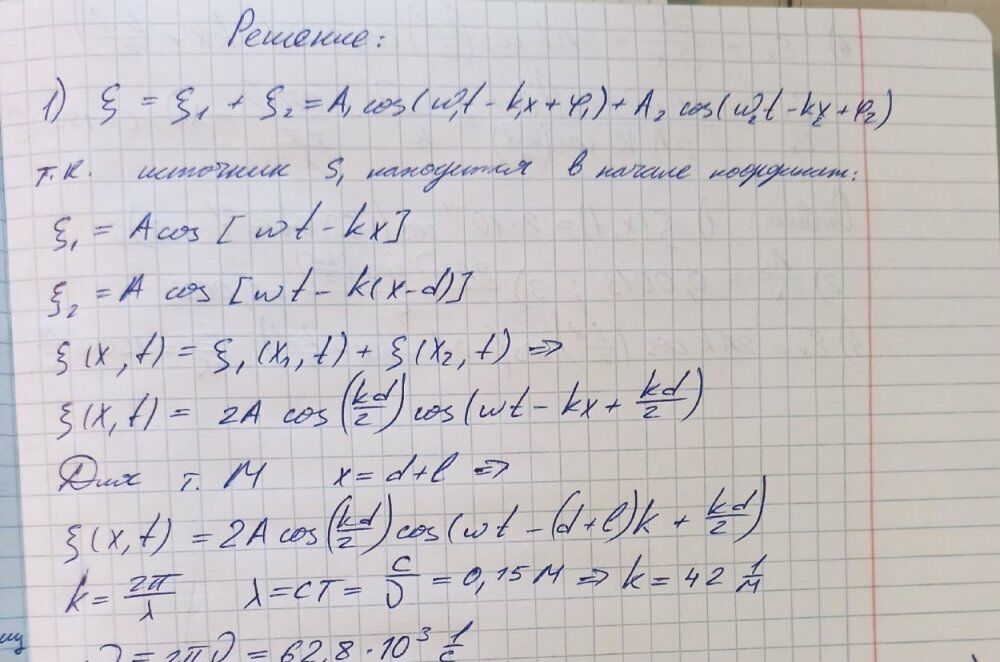 Решение:
1) ξ = ξ₁ + ξ₂ = A₁ cos(ω₁t - k₁x + φ₁) + A₂ cos(ω₂t - kx₂ + φ₂)
т.к. источник S₁ находится в начале координат:
ξ₁ = A cos [ωt - kx]
ξ₂ = A cos [ωt - k(x-d)]
ξ(x,t) = ξ₁(x₁,t) + ξ(x₂,t) ⇒
ξ(x,t) = 2A cos(kd/2) cos(ωt - kx + kd/2)
Для т. М x = d+l ⇒
ξ(x,t) = 2A cos(kd/2) cos(ωt - (d+l)k + kd/2)
k = 2π/λ λ = cT = c/ν = 0,15 м ⇒ k = 42 1/м
= 2πν = 62,8 · 10³ 1/с